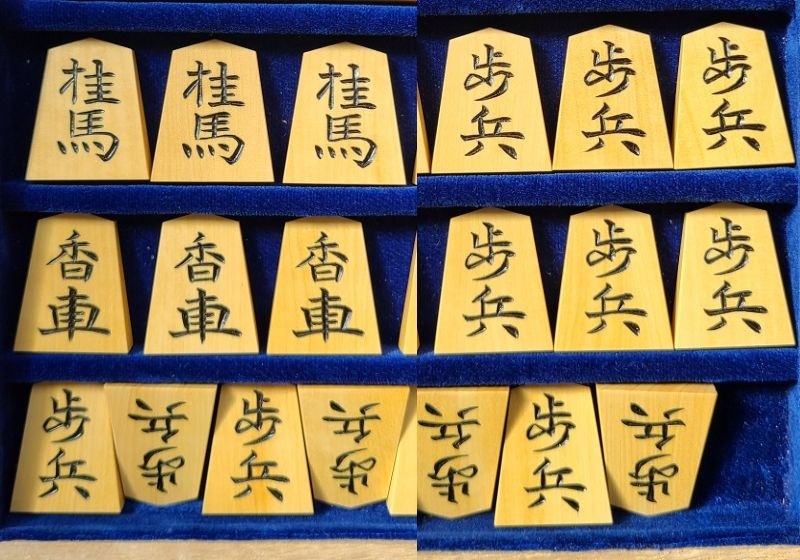 桂馬
桂馬
桂馬
香車
香車
香車
歩兵
歩兵
歩兵
歩兵
歩兵
歩兵
歩兵
歩兵
歩兵
歩兵
歩兵
歩兵
歩兵